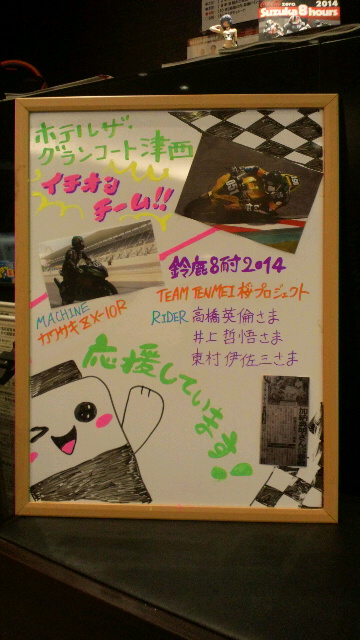 2014
Suzuka 8hours
ホテルザ・
グランコート津西
イチオシ
チーム!!
鈴鹿8耐2014
TEAM TENMEI 桜プロジェクト
MACHINE
カワサキZX-10R
RIDER 高橋英倫さま
井上哲悟さま
東村伊佐三さま
応援しています!